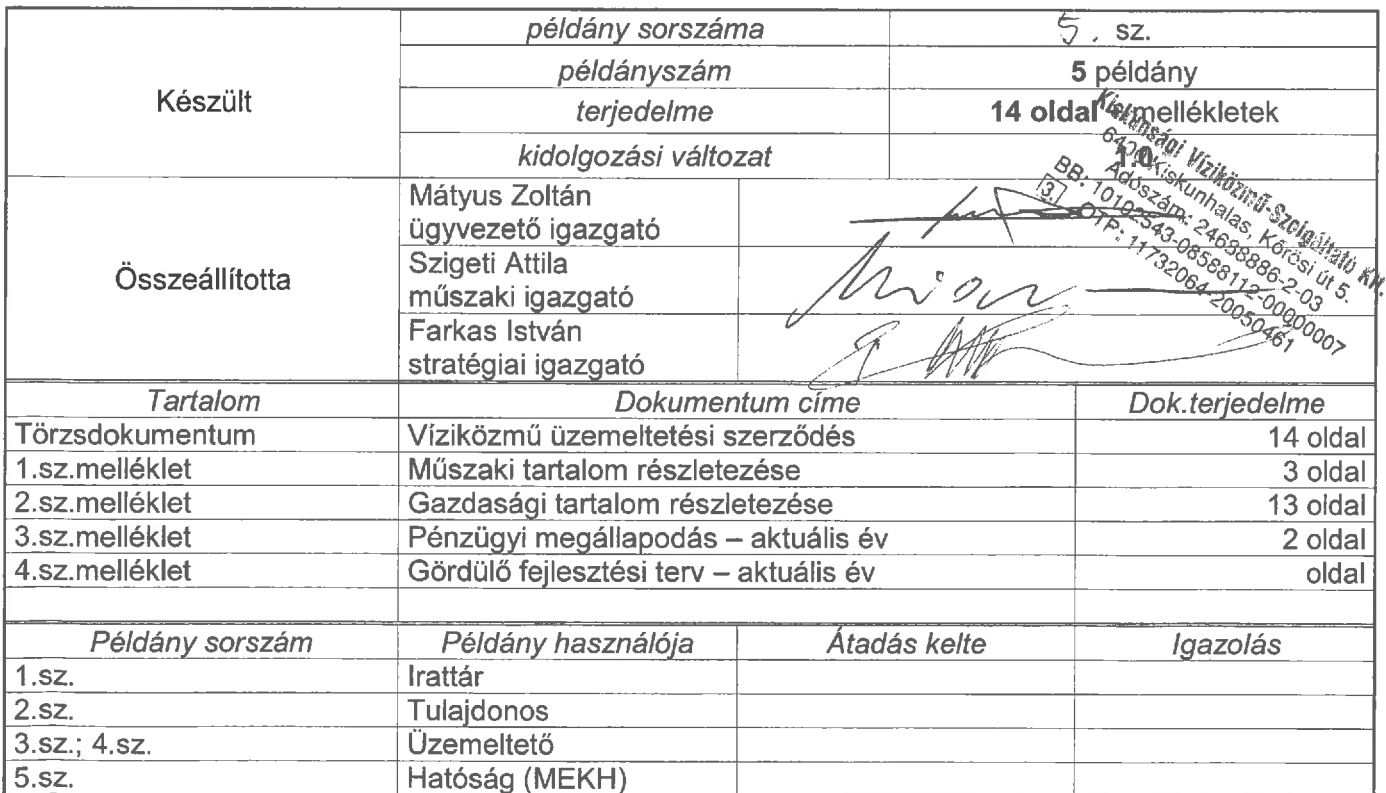 Készült
példány sorszáma 5. sz.
példányszám 5 példány
terjedelme 14 oldal + mellékletek
kidolgozási változat 1.0
Összeállította
Mátyus Zoltán
ügyvezető igazgató
Szigeti Attila
műszaki igazgató
Farkas István
stratégiai igazgató
Kiskunsági Víziközmű-Szolgáltató Kft.
6400 Kiskunhalas, Kőrösi út 5.
Adószám: 24638886-2-03
BB: 10102543-08588112-00000007
3. OTP: 11732064-20050461
Tartalom Dokumentum címe Dok.terjedelme
Törzsdokumentum Víziközmű üzemeltetési szerződés 14 oldal
1.sz.melléklet Műszaki tartalom részletezése 3 oldal
2.sz.melléklet Gazdasági tartalom részletezése 13 oldal
3.sz.melléklet Pénzügyi megállapodás – aktuális év 2 oldal
4.sz.melléklet Gördülő fejlesztési terv – aktuális év oldal
Példány sorszám Példány használója Átadás kelte Igazolás
1.sz. Irattár
2.sz. Tulajdonos
3.sz.; 4.sz. Üzemeltető
5.sz. Hatóság (MEKH)